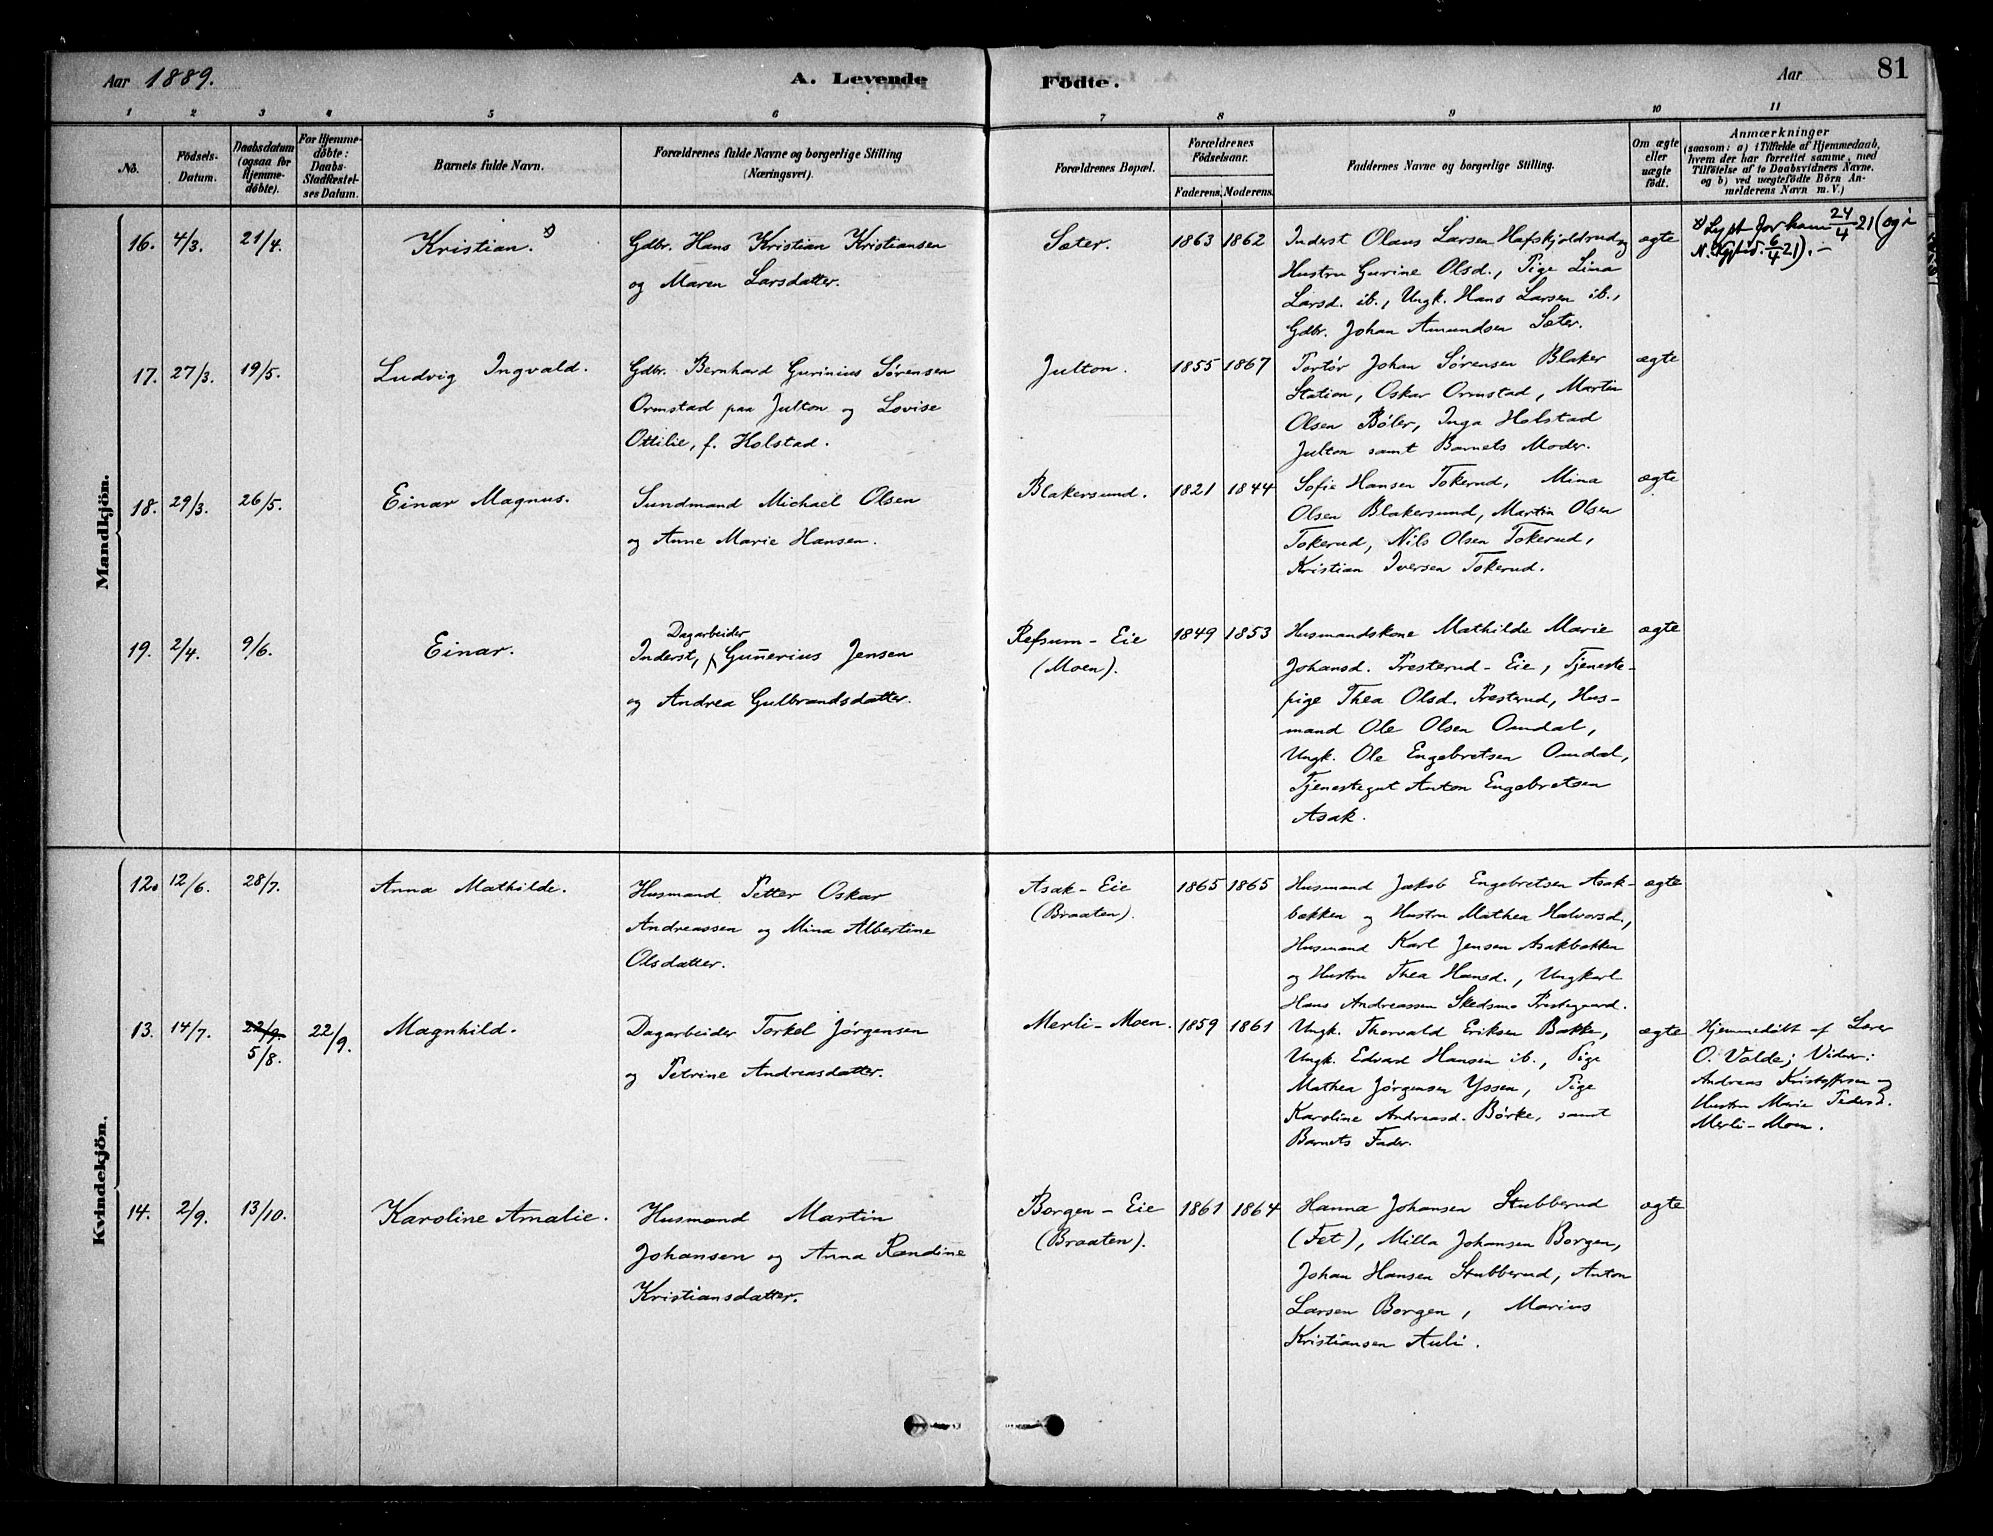 Aar 1889.
A. Levende
Födte.
Aar
81
1 2 3 4 5 6 7 8 9 10 11
No.
Födsels-
Datum.
Daabsdatum
(ogsaa for
Hjemme-
døbte).
For Hjemme-
døbte:
Daabs-
Stadfæstel-
ses Datum.
Barnets fulde Navn.
Forældrenes fulde Navne og borgerlige Stilling
(Næringsvei).
Forældrenes Bopæl.
Forældrenes
Födselsaar.
Faderens. Moderens.
Faddernes Navne og borgerlige Stilling.
Om ægte
eller
uægte
født.
Anmærkninger
(saasom: a) i Tilfælde af Hjemmedaab,
hvem der har forrettet samme, med
Tilföielse af to Daabsvidners Navne.
og b) ved uægtefödte Börn An-
melderens Navn m. V.)
Mandkjön.
16. 4/3. 21/4.
Kristian. x)
Gdbr. Hans Kristian Kristiansen
og Maren Larsdatter.
Sæter.
1863 1862
Inderst Olaus Larsen Hafskjoldrud og
Hustru Gurine Olsd., Pige Lina
Larsd. ib., Ungk. Hans Larsen ib.,
Gdbr. Johan Amundsen Sæter.
ægte
x) Lyst for ham 24/4 21 (og i
6/4 21). –
17. 27/3. 19/5.
Ludvig Ingvald.
Gdbr. Bernhard Gurinius Sørensen
Ormstad paa Julton og Lovise
Ottilie, f. Holstad.
Julton.
1855 1867
Portør Johan Sørensen Blaker
Station, Oskar Ormstad, Martin
Olsen Bøler, Inga Holstad
Julton samt Barnets Moder.
ægte
18. 29/3. 26/5.
Einar Magnus.
Sundmand Michael Olsen
og Anne Marie Hansen.
Blakersund.
1821 1844
Sofie Hansen Tokerud, Mina
Olsen Blakersund, Martin Olsen
Tokerud, Nils Olsen Tokerud,
Kristian Iversen Tokerud.
ægte
19. 2/4. 9/6.
Einar.
Dagarbeider
Inderst, Gunerius Jensen
og Andrea Gulbrandsdatter.
Refsum – Eie
(Moen).
1849 1853
Husmandskone Mathilde Marie
Johansd. Præsterud – Eie, Tjeneste-
pige Thea Olsd. Præsterud, Hus-
mand Ole Olsen Omdal,
Ungk. Ole Engebretsen Omdal,
Tjenestegut Anton Engebretsen
Asak.
ægte
Kvindekjön.
12. 12/6. 28/7.
Anna Mathilde.
Husmand Petter Oskar
Andreassen og Mina Albertine
Olsdatter.
Asak – Eie
(Braaten).
1865 1865
Husmand Jakob Engebretsen Asak-
bakken og Hustru Mathea Halvorsd.,
Husmand Karl Jensen Asakbakken
og Hustru Thea Hansd., Ungkarl
Hans Andreassen Skedsmo Præstegaard.
ægte
13. 14/7. 22/9. 22/9.
5/8.
Magnhild.
Dagarbeider Torkel Jørgensen
og Petrine Andreasdatter.
Merli – Moen.
1859 1861
Ungk. Thorvald Eriksen Bakke,
Ungk. Edvard Hansen ib., Pige
Mathea Jørgensen Yssen, Pige
Karoline Andreasd. Börke, samt
Barnets Fader.
ægte
Hjemmedöbt af Lærer
O. Volde; Vidner:
Andreas Kristoffersen og
Hustru Marie Pedersd.
Merli – Moen.
14. 2/9. 13/10.
Karoline Amalie.
Husmand Martin
Johansen og Anna Randine
Kristiansdatter.
Borgen – Eie
(Braaten).
1861 1864
Hanna Johansen Stubberud
(Fet), Milla Johansen Borgen,
Johan Hansen Stubberud, Anton
Larsen Borgen, Marius
Kristiansen Auli.
ægte